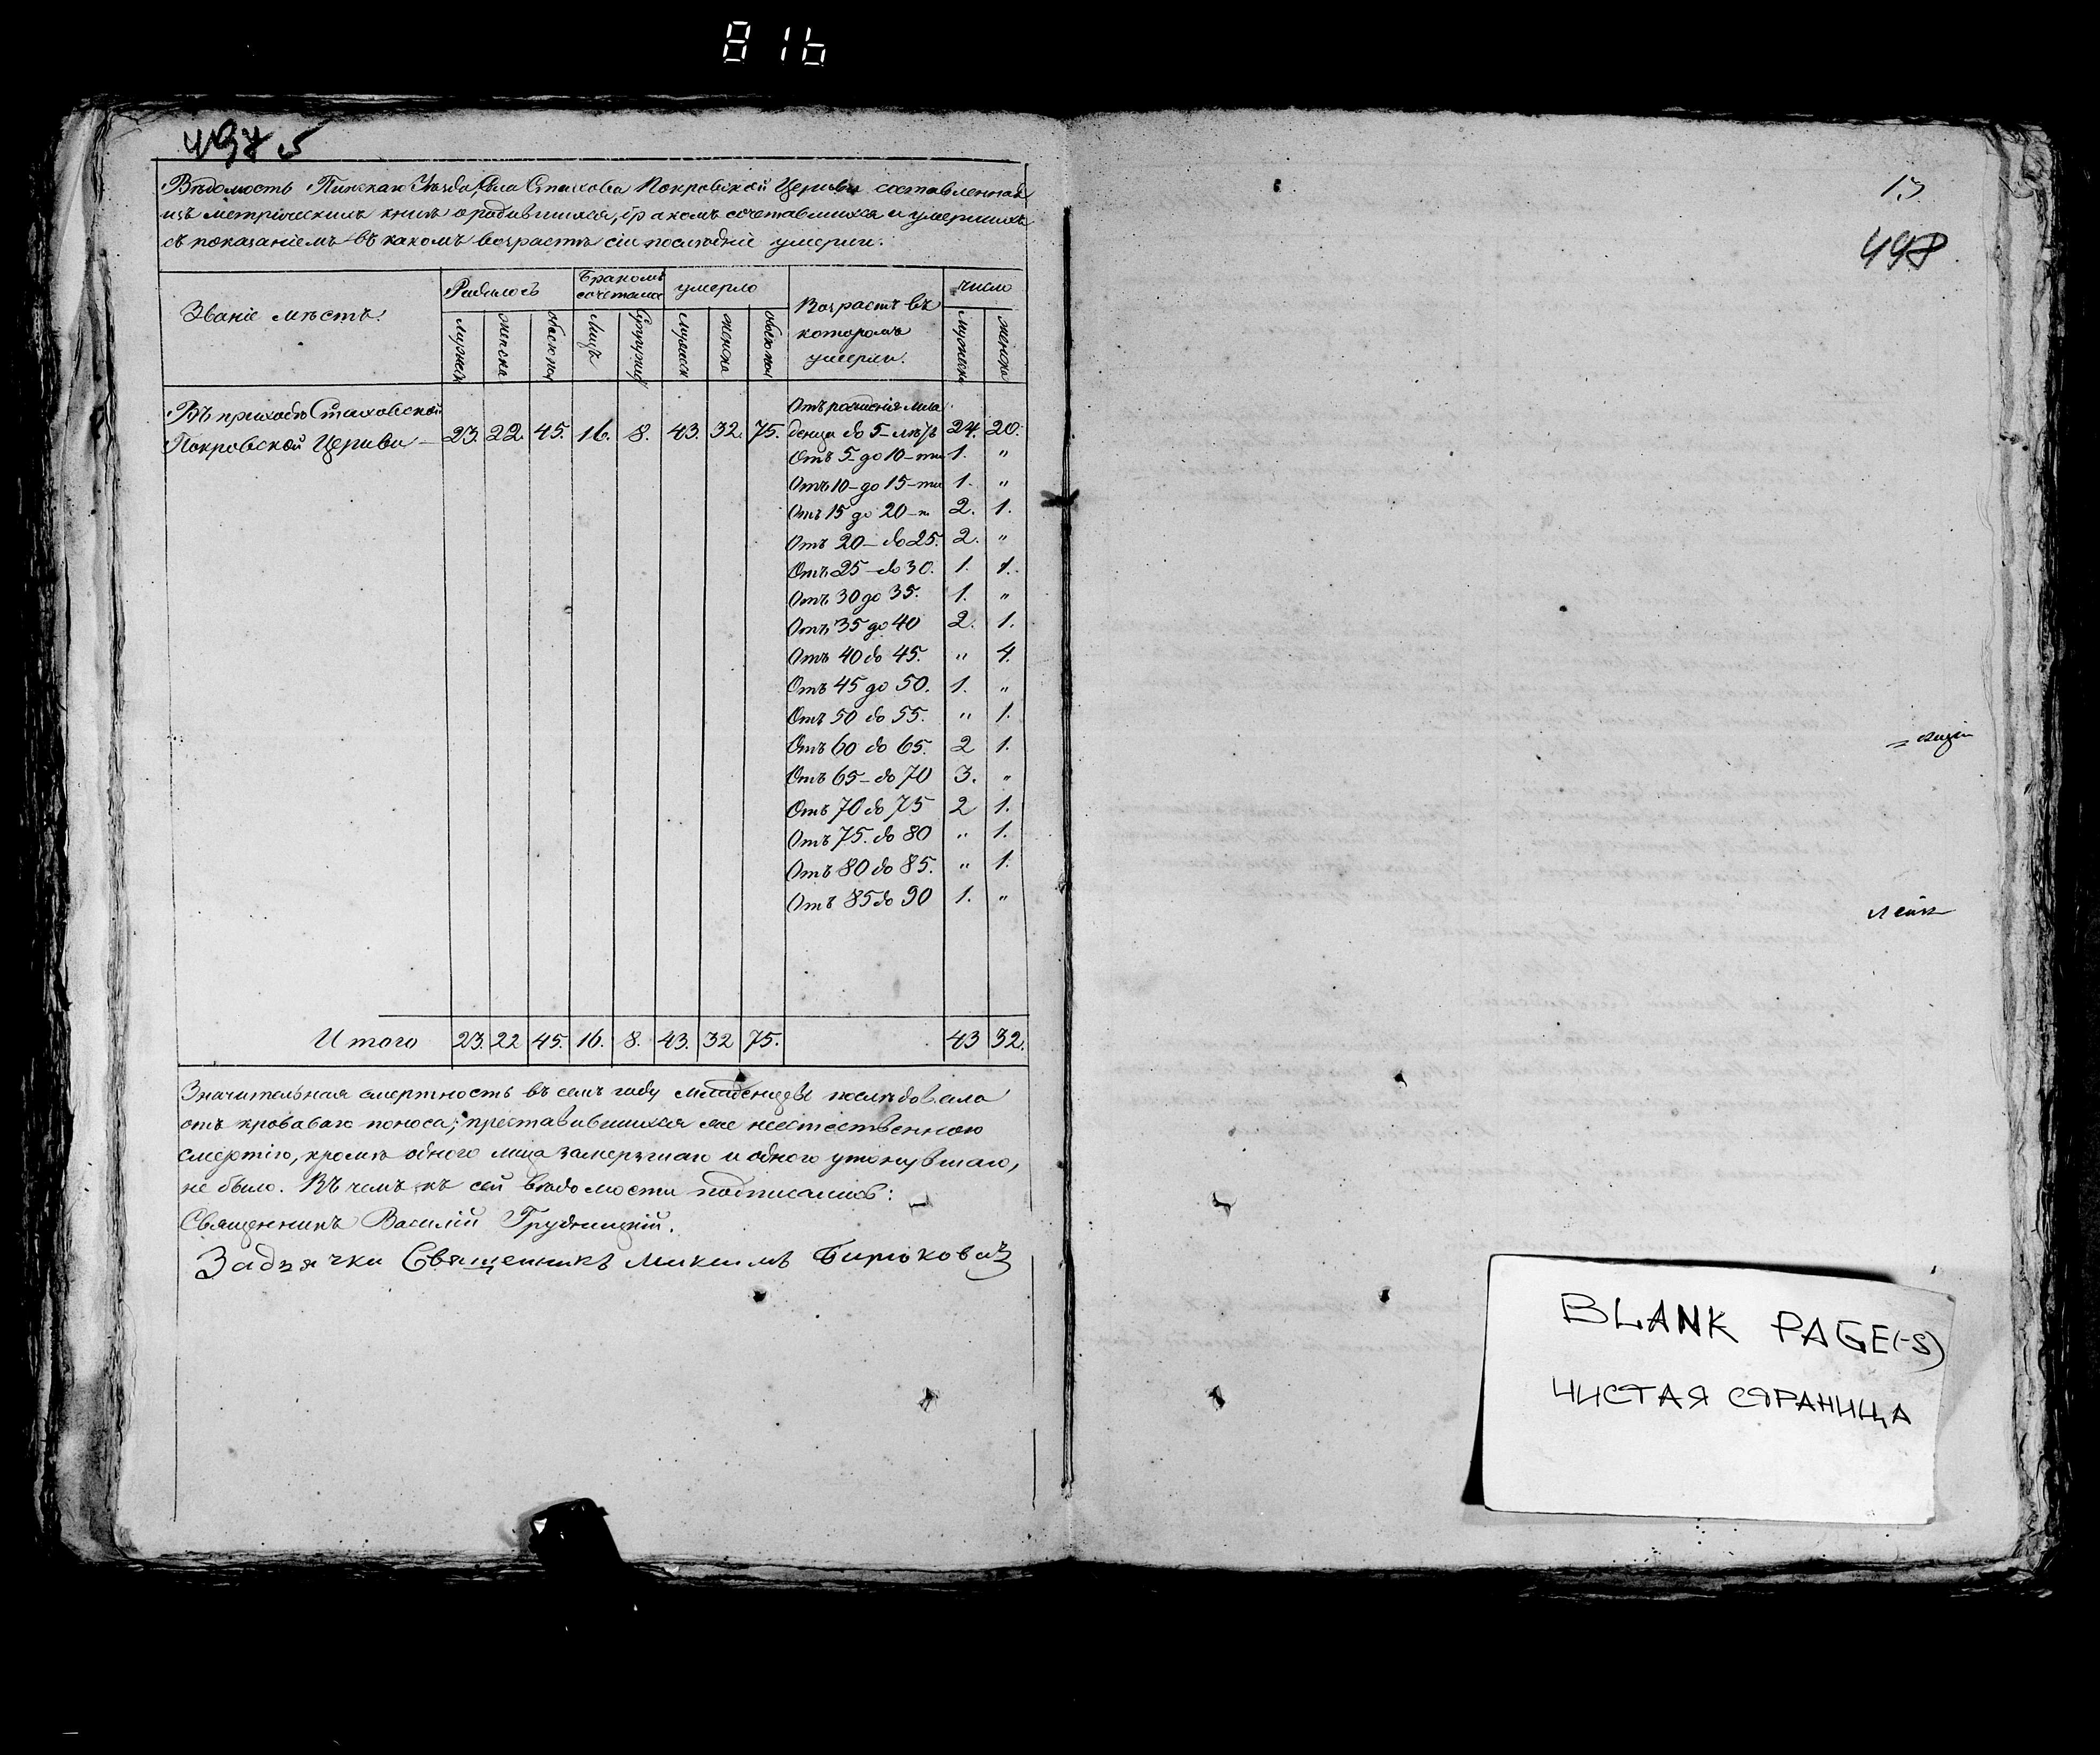 816
497 5
Вѣдомость Пинскаго Уѣзда, Села Стахова Покровской Церкви составленная
изъ метрическихъ книгъ о родившихся, бракомъ сочетавшихся и умершихъ
съ показаніемъ въ какомъ возрастѣ сіи послѣдніе умерли.
Званіе мѣстъ. Родилось Бракомъ сочетано умерло Возрастъ въ которомъ умерли. число
мужеск женска обоего пол Лицъ Супружес мужеск женска обоего пол мужеска женска
Въ приходѣ Стаховской
Покровской Церкви — 23. 22. 45. 16. 8. 43. 32. 75.
Отъ рожденія мла
денца до 5-лѣтъ 24. 20.
Отъ 5- до 10-ти 1. "
Отъ 10- до 15-ти 1. "
Отъ 15 до 20-т 2. 1.
Отъ 20- до 25. 2. "
Отъ 25- до 30. 1. 1.
Отъ 30 до 35. 1. "
Отъ 35 до 40 2. 1.
Отъ 40 до 45. " 4.
Отъ 45 до 50. 1. "
Отъ 50 до 55. " 1.
Отъ 60 до 65. 2 1.
Отъ 65- до 70 3. "
Отъ 70 до 75 2 1.
Отъ 75. до 80 " 1.
Отъ 80 до 85. " 1.
Отъ 85 до 90 1. "
Итого 23. 22 45. 16. 8. 43. 32 75. 43 32.
Значительная смертность въ семъ году младенцевъ послѣдовала
отъ кроваваго поноса; преставившихся же неестественною
смертію, кромѣ одного лица замерзшаго и одного утонувшаго,
не было. Въ чемъ къ сей вѣдомости подписались:
Священникъ Василій Грудницкій.
Задьячки Священникъ Бирюковичъ
13
498
BLANK PAGE(-S)
ЧИСТАЯ СТРАНИЦА